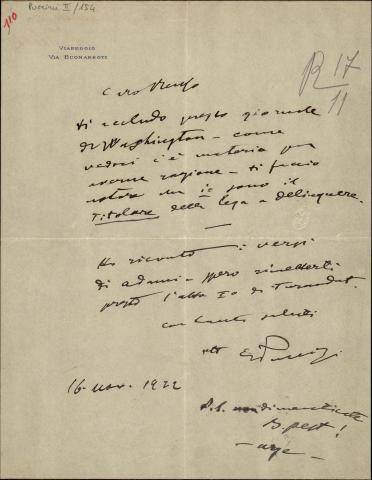 110
Puccini II/154
VIAREGGIO
VIA BUONARROTI
R 17
11
Caro
ti accludo questo giornale
di Washington - come
vedrai c'è materia per
averne ragione - ti faccio
notare che io sono il
Titolare della lega a delinquere.
Ho ricevuto i versi
di Adami - spero rimetterti
presto l'atto Io di Turandot.
con tanti saluti
aff
GPuccini
16. nov. 1922
P.S. non dimenticate
B.pest!
- urge -